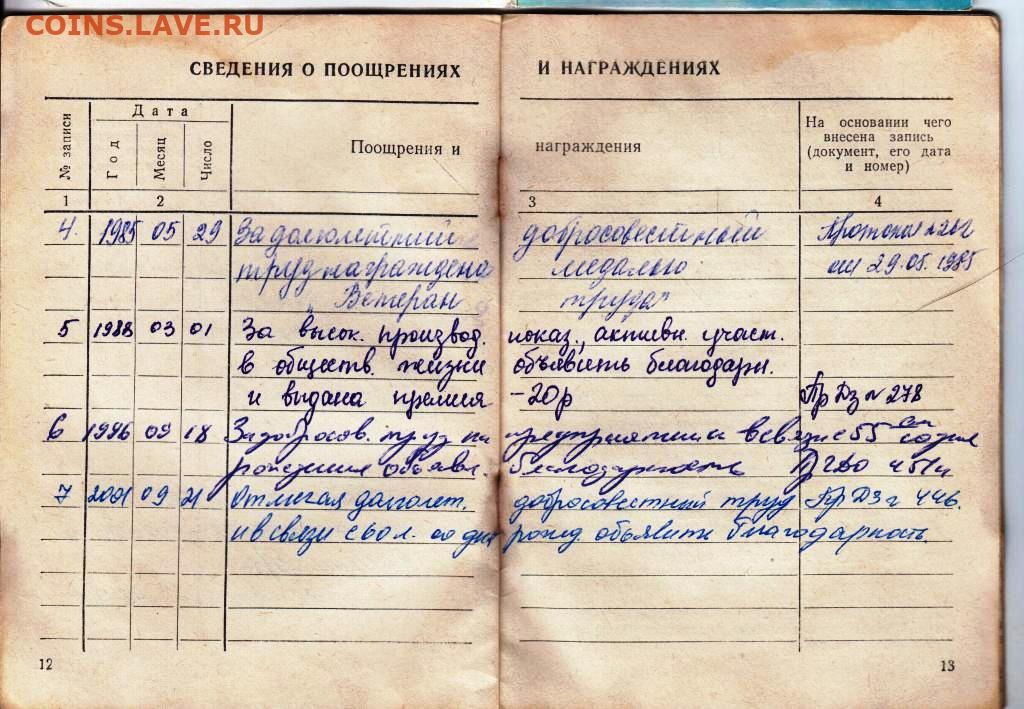 COINS.LAVE.RU
СВЕДЕНИЯ О ПООЩРЕНИЯХ И НАГРАЖДЕНИЯХ
№ записи
Дата
Год
Месяц
Число
Поощрения и награждения
На основании чего
внесена запись
(документ, его дата
и номер)
1 2 3 4
4. 1985 05 29 За долголетний добросовестный Протокол
труд награждена медалью 29.05.1985
"Ветеран труда"
5 1988 03 01 За высок. производ. показ., активн. участ.
в обществ. жизни объявить благодарн.
и выдана премия -20р Пр ДЗ № 278
6 1996 09 18 За добросов. труд на предприятии и в связи с 55 со дня
рождения объявл. благодарность
7 2001 09 21 Отмечая долголет. добросовестный труд Пр ДЗ 446.
и в связи с 60 л. со дня рожд. объявить благодарность.
12
13